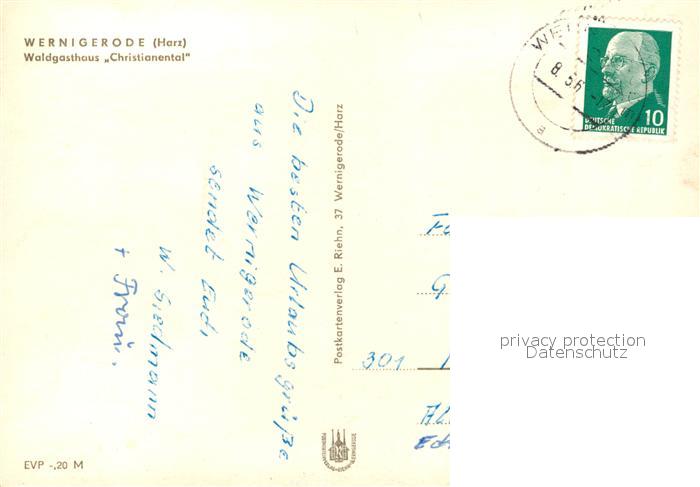 WERNIGERODE (Harz)
Waldgasthaus „Christianental"
Die besten Urlaubsgrüße
aus Wernigerode
sendet Euch
W. Siedmann
+ Frau.
Postkartenverlag E. Riehn, 37 Wernigerode/Harz
10
DEUTSCHE
DEMOKRATISCHE REPUBLIK
301
privacy protection
Datenschutz
EVP -,20 M